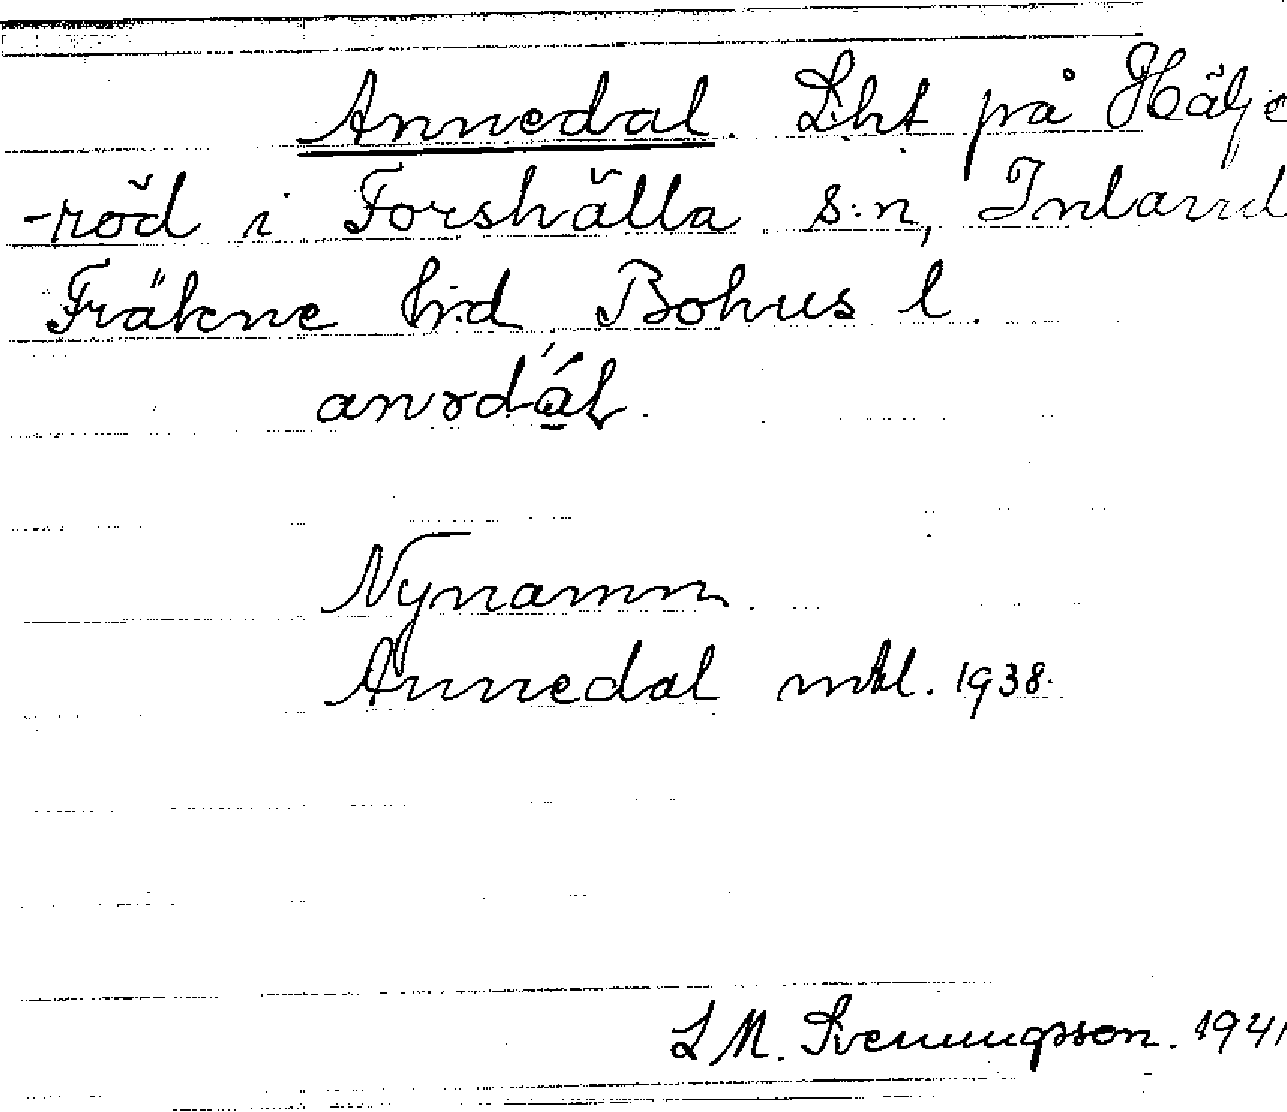 Annedal. Lht på Hälje
-röd i Forshälla s:n, Inland
Fräkne h:d Bohus l.
Nynamn.
Annedal mtl. 1938.
L M. Svenungsson. 1941